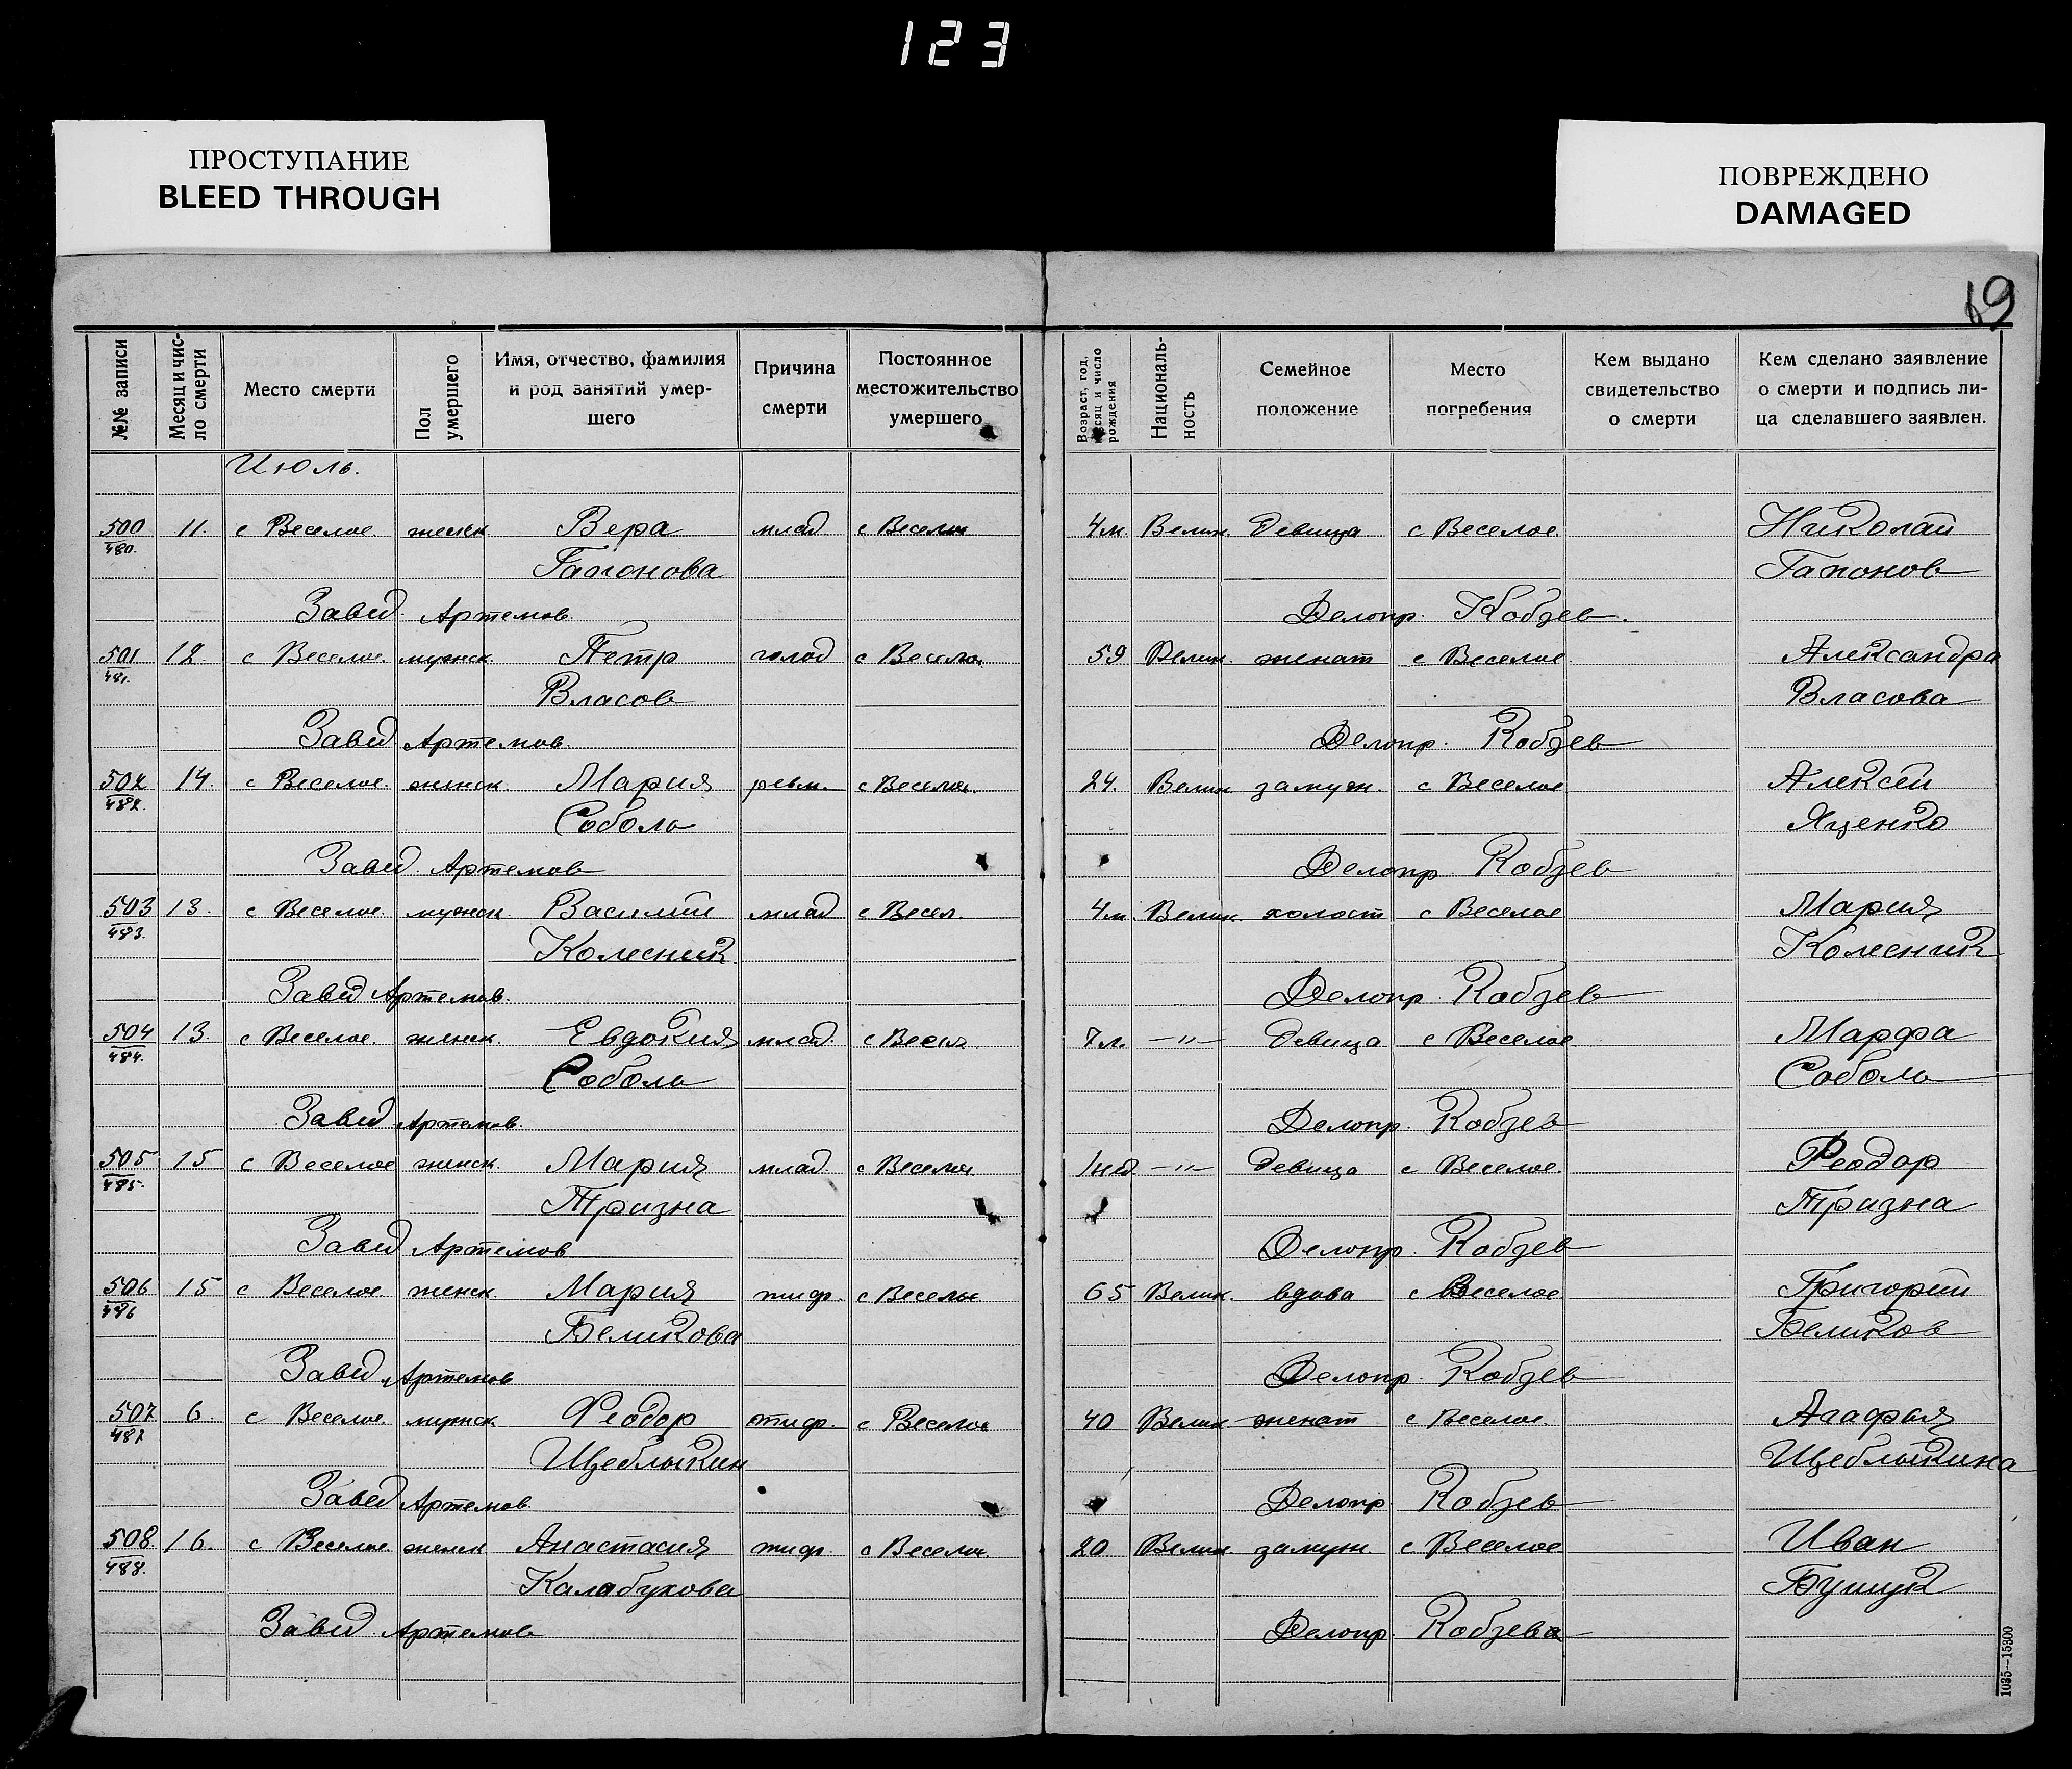 123
ПРОСТУПАНИЕ
BLEED THROUGH
ПОВРЕЖДЕНО
DAMAGED
19
№№ записи
Месяц и чис-
ло смерти
Место смерти
Пол
умершего
Имя, отчество, фамилия
и род занятий умер-
шего
Причина
смерти
Постоянное
местожительство
умершего
Возраст, год,
месяц и число
рождения
Националь-
ность
Семейное
положение
Место
погребения
Кем выдано
свидетельство
о смерти
Кем сделано заявление
о смерти и подпись ли-
ца сделавшего заявлен.
Июль.
500 11. с Веселое женск. Вера млад с Веселое 4м. Велик. девица с Веселое. Николай
480. Гапонова Гапонов
Завед. Артемов. Делопр. Кобзев.
501 12. с Веселое. мужск. Петр голод с Веселое 59 Велик. женат с Веселое Александра
481. Власов Власова
Завед Артемов. Делопр. Кобзев
502 14. с Веселое. женск. Мария ревм. с Веселое. 24. Велик замуж. с Веселое Алексей
482. Соболь Яценко
Завед. Артемов Делопр Кобзев
503 13. с Веселое. мужск. Василий млад с Весел. 4м. Велик. холост с Веселое Мария
483. Колесник Колесник
Завед Артемов. Делопр. Кобзев
504 13. с Веселое. женск. Евдокия млад. с Весел. —"— девица с Веселое Марфа
484. Соболь Соболь
Завед Артемов. Делопр. Кобзев
505 15 с Веселое женск. Мария млад. с Веселое 1нед. —"— девица с Веселое. Феодор
485. Тризна Тризна
Завед Артемов Делопр. Кобзев
506 15 с Веселое женск. Мария тиф. с Веселое 65 Велик. вдова с Веселое Григорий
486 Беликова Беликов
Завед Артемов Делопр. Кобзев
507 6. с Веселое. мужск. Феодор тиф. с Веселое 40 Велик женат с Веселое. Агафья
487 Щеблыкин Щеблыкина
Завед Артемов Делопр. Кобзев
508. 16. с Веселое. женск Анастасия тиф. с Веселое. 20 Велик. замуж. с Веселое. Иван
488. Калабухова
Завед. Артемов Делопр. Кобзев
1035—15300